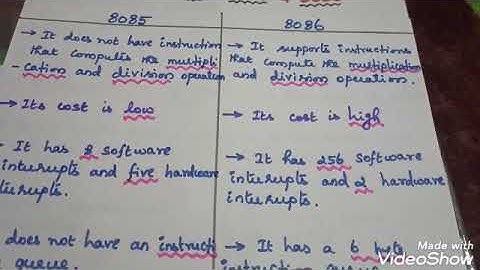 8085
→ It does not have instruction
that computes the multipli
-cation and division operation
→ Its cost is low
→ It has 8 software
interrupts and five hardware
terrupts.
does not have an instructi
queue.
8086
→ It supports instructions
that compute the multiplication
and division operation.
→ Its cost is high
→ It has 256 software
interrupts and 2 hardware
interrupts.
→ It has a 6 byte
instruction queue
Made with
VideoShow